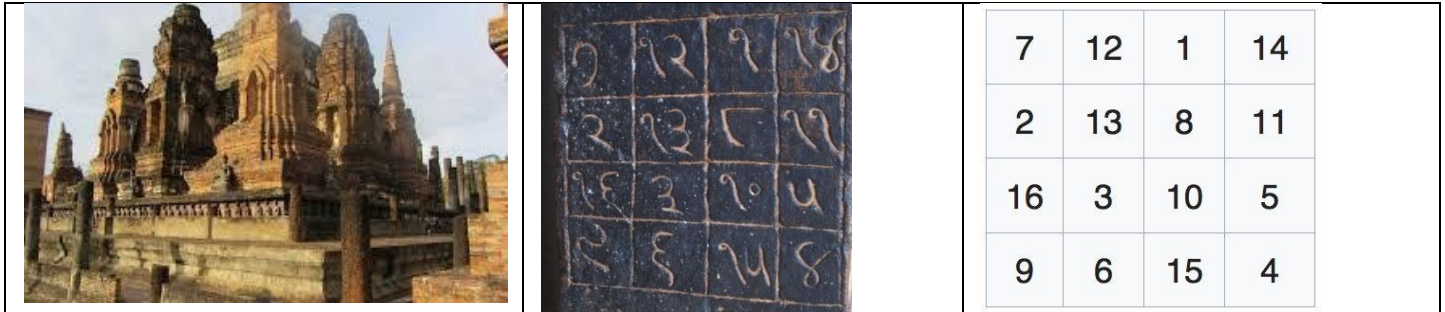 ७ १२ १ १४
२ १३ ८ ११
१६ ३ १० ५
९ ६ १५ ४
7 12 1 14
2 13 8 11
16 3 10 5
9 6 15 4